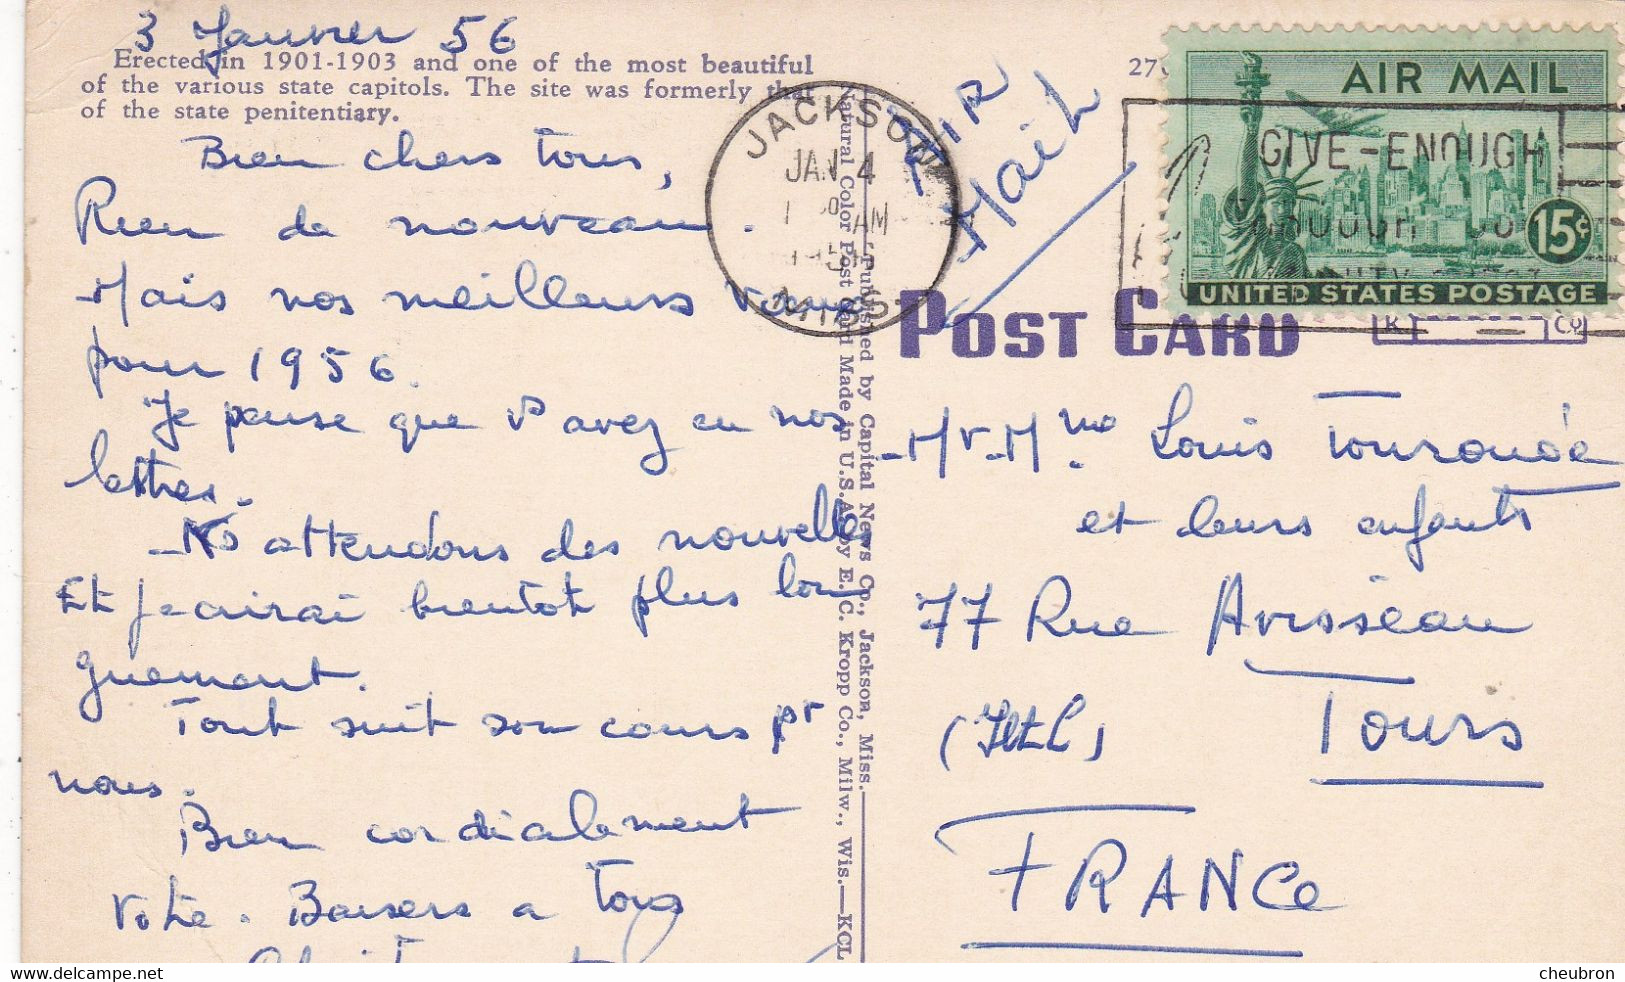 3 Janvier 56
Erected in 1901-1903 and one of the most beautiful
of the various state capitols. The site was formerly that
of the state penitentiary.
Bien chers tous,
Rien de nouveau.
Mais nos meilleurs vœux
pour 1956.
Je pense que vs avez eu nos
lettres.
Ns attendons des nouvelles
Et je écrirai bientôt plus lon
guement.
Tout suit son cours pr
nous.
Bien cordialement
Votre. Baisers a tous
Published by Capital News Co., Jackson, Miss.
Natural Color Post Card Made in U.S.A. by E. C. Kropp Co., Milw., Wis.—KCL
JACKSON
JAN 4
AM
MISS
AIR
Mail
AIR MAIL
GIVE-ENOUGH
15¢
UNITED STATES POSTAGE
POST CARD
K
CO
Mr Mme Louis Tourondée
et leurs enfants
77 Rue Avisseau
Tours
(I et L)
FRANCE
www.delcampe.net
cheubron